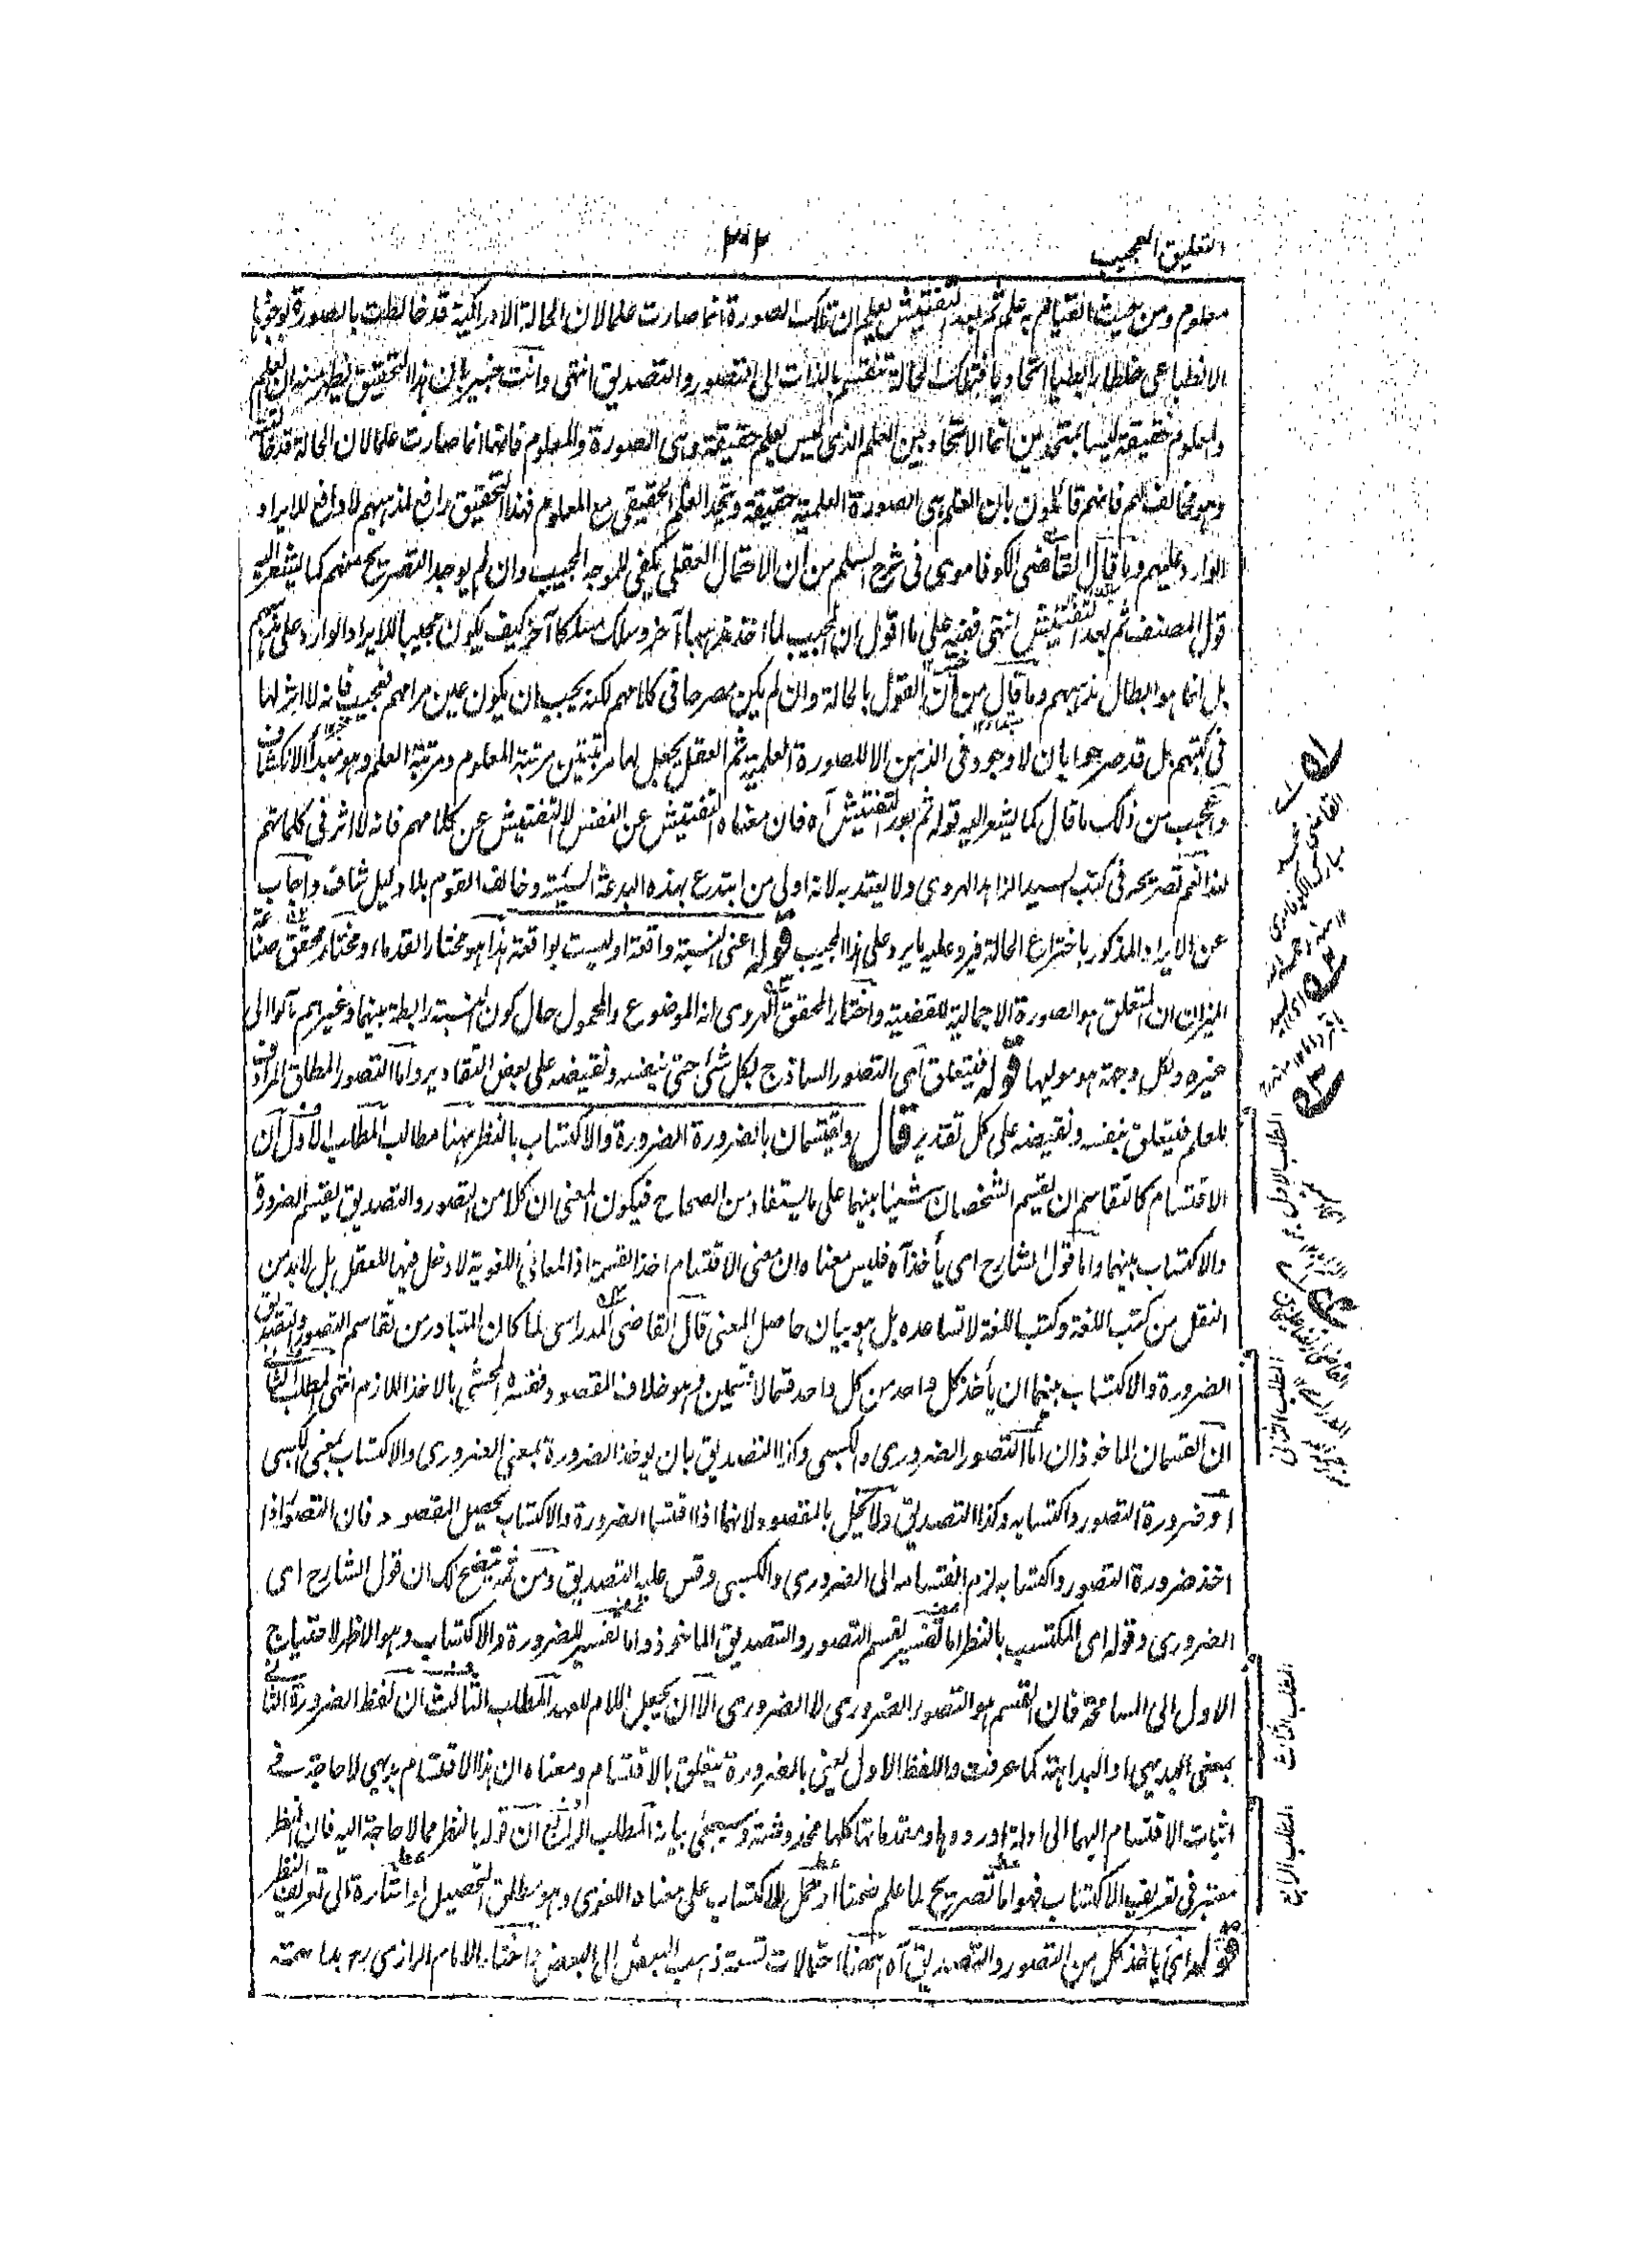 التعليق العجيب
٣٢
معلوم ومن حيث القيام به علم ثم بعد التفتيش يعلم ان تلك الصورة انما صارت علما لان الحالة الادراكية قد خالطت بالصورة لوجودها
الانطباعي خلطا رابطيا اتحاديا فتلك الحالة تنقسم بالذات الى التصور والتصديق انتهى وانت خبير بان هذا التحقيق يظهر منه ان العلم
والمعلوم حقيقة ليسا بمتحدين انما الاتحاد بين العلم الذى ليس بعلم حقيقة وهى الصورة والمعلوم فانها انما صارت علما لان الحالة قد خالطت
وهو مخالف لهم فانهم قائلون بان العلم هى الصورة العلمية حقيقة ويتحد العلم الحقيقى مع المعلوم فهذا التحقيق رافع لمذهبهم لا دافع للايراد
الوارد عليهم وما قال القاضى الكوفاموى فى شرح السلم من ان الاحتمال العقلى يكفى للموجه المجيب وان لم يوجد التصريح منهم كما يشعر اليه
قول المصنف ثم بعد التفتيش انتهى ففيه على ما اقول ان المجيب لما اخذ مذهبا آخر وسلك مسلكا آخر كيف يكون مجيبا للايراد الوارد على مذهبهم
بل انما هو ابطال مذهبهم وما قال من ان القول بالحالة وان لم يكن مصرحا فى كلامهم لكنه يجب ان يكون عين مرامهم فعجيب فانه لا اثر لها
فى كتبهم بل قد صرحوا بان لا وجود فى الذهن الا للصورة العلمية ثم العقل يجعل لها مرتبتين مرتبة المعلوم ومرتبة العلم وهو مبدأ الانكشاف
واعجب من ذلك ما قال كما يشعر اليه قوله ثم بعد التفتيش آه فان معناه التفتيش عن النفس لا التفتيش عن كلامهم فانه لا اثر فى كلماتهم
لهذا نعم تصريحه فى كتب السيد الزاهد الهروى ولا يعتد به لانه اولى من ابتدع بهذه البدعة السيئة وخالف القوم بلا دليل شاف واجاب
عن الايراد المذكور باختراع الحالة فيرد عليه ما يرد على هذا المجيب قوله اعنى النسبة واقعة او ليست بواقعة هذا هو مختار القدماء ومختار محقق صناعة
الميزان ان المتعلق هو الصورة الاجمالية للقضية واختار المحقق الهروى انه الموضوع والمحمول حال كون النسبة رابطة بينهما وغيرهم مالوا الى
غيره ولكل وجهة هو موليها قوله فيتعلق اى التصور الساذج بكل شئ حتى بنفسه ونقيضه على بعض التقادير واما التصور المطلق المرادف
للعلم فيتعلق بنفسه ونقيضه على كل تقدير قال ويقتسمان بالضرورة الضرورة والاكتساب بالنظر ههنا مطالب المطلب الاول ان
الاقتسام كالتقاسم ان يقسم الشخصان شيئا بينهما على ما يستفاد من الصحاح فيكون المعنى ان كلا من التصور والتصديق يقتسم الضرورة
والاكتساب بينهما واما قول الشارح اى يأخذ آه فليس معناه ان معنى الاقتسام اخذ القسمة اذ المعانى اللغوية لا دخل فيها للعقل بل لا بد من
النقل من كتب اللغة وكتب اللغة لا تساعده بل هو بيان حاصل المعنى قال القاضى المدراسى لما كان المتبادر من تقاسم التصور والتصديق
الضرورة والاكتساب بينهما ان يأخذ كل واحد من كل واحد قسما لا قسمين وهو خلاف المقصود وفسره المحشى بالاخذ اللازم انتهى المطلب الثانى
ان القسمان الماخوذان اما التصور الضرورى والكسبى وكذا التصديق بان يوخذ الضرورة بمعنى الضرورى والاكتساب بمعنى الكسبى
او ضرورة التصور واكتسابه وكذا التصديق ولا يخل بالمقصود لانهما اذا اقتسما الضرورة والاكتساب يحصل المقصود فان التصور اذا
اخذ ضرورة التصور واكتسابه لزم انقسامه الى الضرورى والكسبى وقس عليه التصديق ومن ثمه يتضح لك ان قول الشارح اى
الضرورى وقوله اى المكتسب بالنظر اما تفسير لقسم التصور والتصديق الماخوذ واما تفسير للضرورة والاكتساب وهو الاظهر لاحتياج
الاول الى المسامحة فان القسم هو التصور الضرورى لا الضرورى الا ان يجعل اللام للعهد المطلب الثالث ان لفظ الضرورة الثانى
بمعنى البديهى او البداهة كما عرفت واللفظ الاول يعنى بالضرورة يتعلق بالاقتسام ومعناه ان هذا الاقتسام بديهى لا حاجة فى
اثبات الاقتسام اليهما الى ادلة اوردوها ومقدماتها كلها مخدوشة وسيجئ بيانه المطلب الرابع ان قوله بالنظر مما لا حاجة اليه فان النظر
معتبر فى تعريف الاكتساب فهو اما تصريح لما علم ضمنا او تحمل للاكتساب على معناه اللغوى وهو مطلق التحصيل او اشارة الى تعريف النظر
قوله اى يأخذ كل من التصور والتصديق آه ههنا احتمالات تسعة ذهب البعض الى البعض فاختار الامام الرازى بداهة
القاضى محمد
مبارك الكوفاموى
المطلب الاول
المطلب الثانى
المطلب الثالث
المطلب الرابع